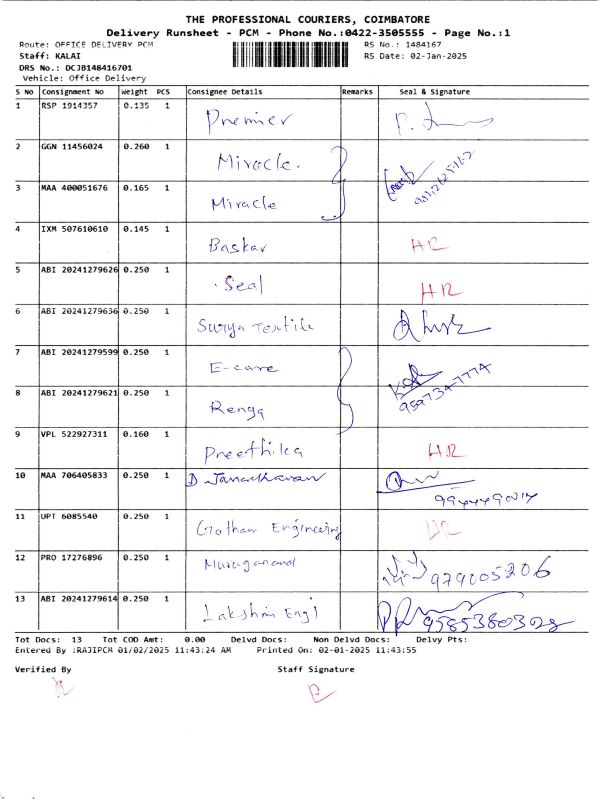 THE PROFESSIONAL COURIERS, COIMBATORE
Delivery Runsheet - PCM - Phone No.:0422-3505555 - Page No.:1
Route: OFFICE DELIVERY PCM RS No.: 1484167
Staff: KALAI RS Date: 02-Jan-2025
DRS No.: DCJB148416701
Vehicle: Office Delivery
S No Consignment No Weight PCS Consignee Details Remarks Seal & Signature
1 RSP 1914357 0.135 1 Premier
2 GGN 11456024 0.260 1 Miracle.
3 MAA 400051676 0.165 1 Miracle
4 IXM 507610610 0.145 1 Baskar HR
5 ABI 20241279626 0.250 1 Seal HR
6 ABI 20241279636 0.250 1 Surya Textile
7 ABI 20241279599 0.250 1 E-care
8 ABI 20241279621 0.250 1 Renga
9 VPL 522927311 0.160 1 Preethika HR
10 MAA 706405833 0.250 1 D Janarthanan
11 UPT 6085540 0.250 1 Gotham Engineering HR
12 PRO 17276896 0.250 1 Muruganand
13 ABI 20241279614 0.250 1 Lakshmi Engi
Tot Docs: 13 Tot COD Amt: 0.00 Delvd Docs: Non Delvd Docs: Delvy Pts:
Entered By :RAJIPCM 01/02/2025 11:43:24 AM Printed On: 02-01-2025 11:43:55
Verified By Staff Signature